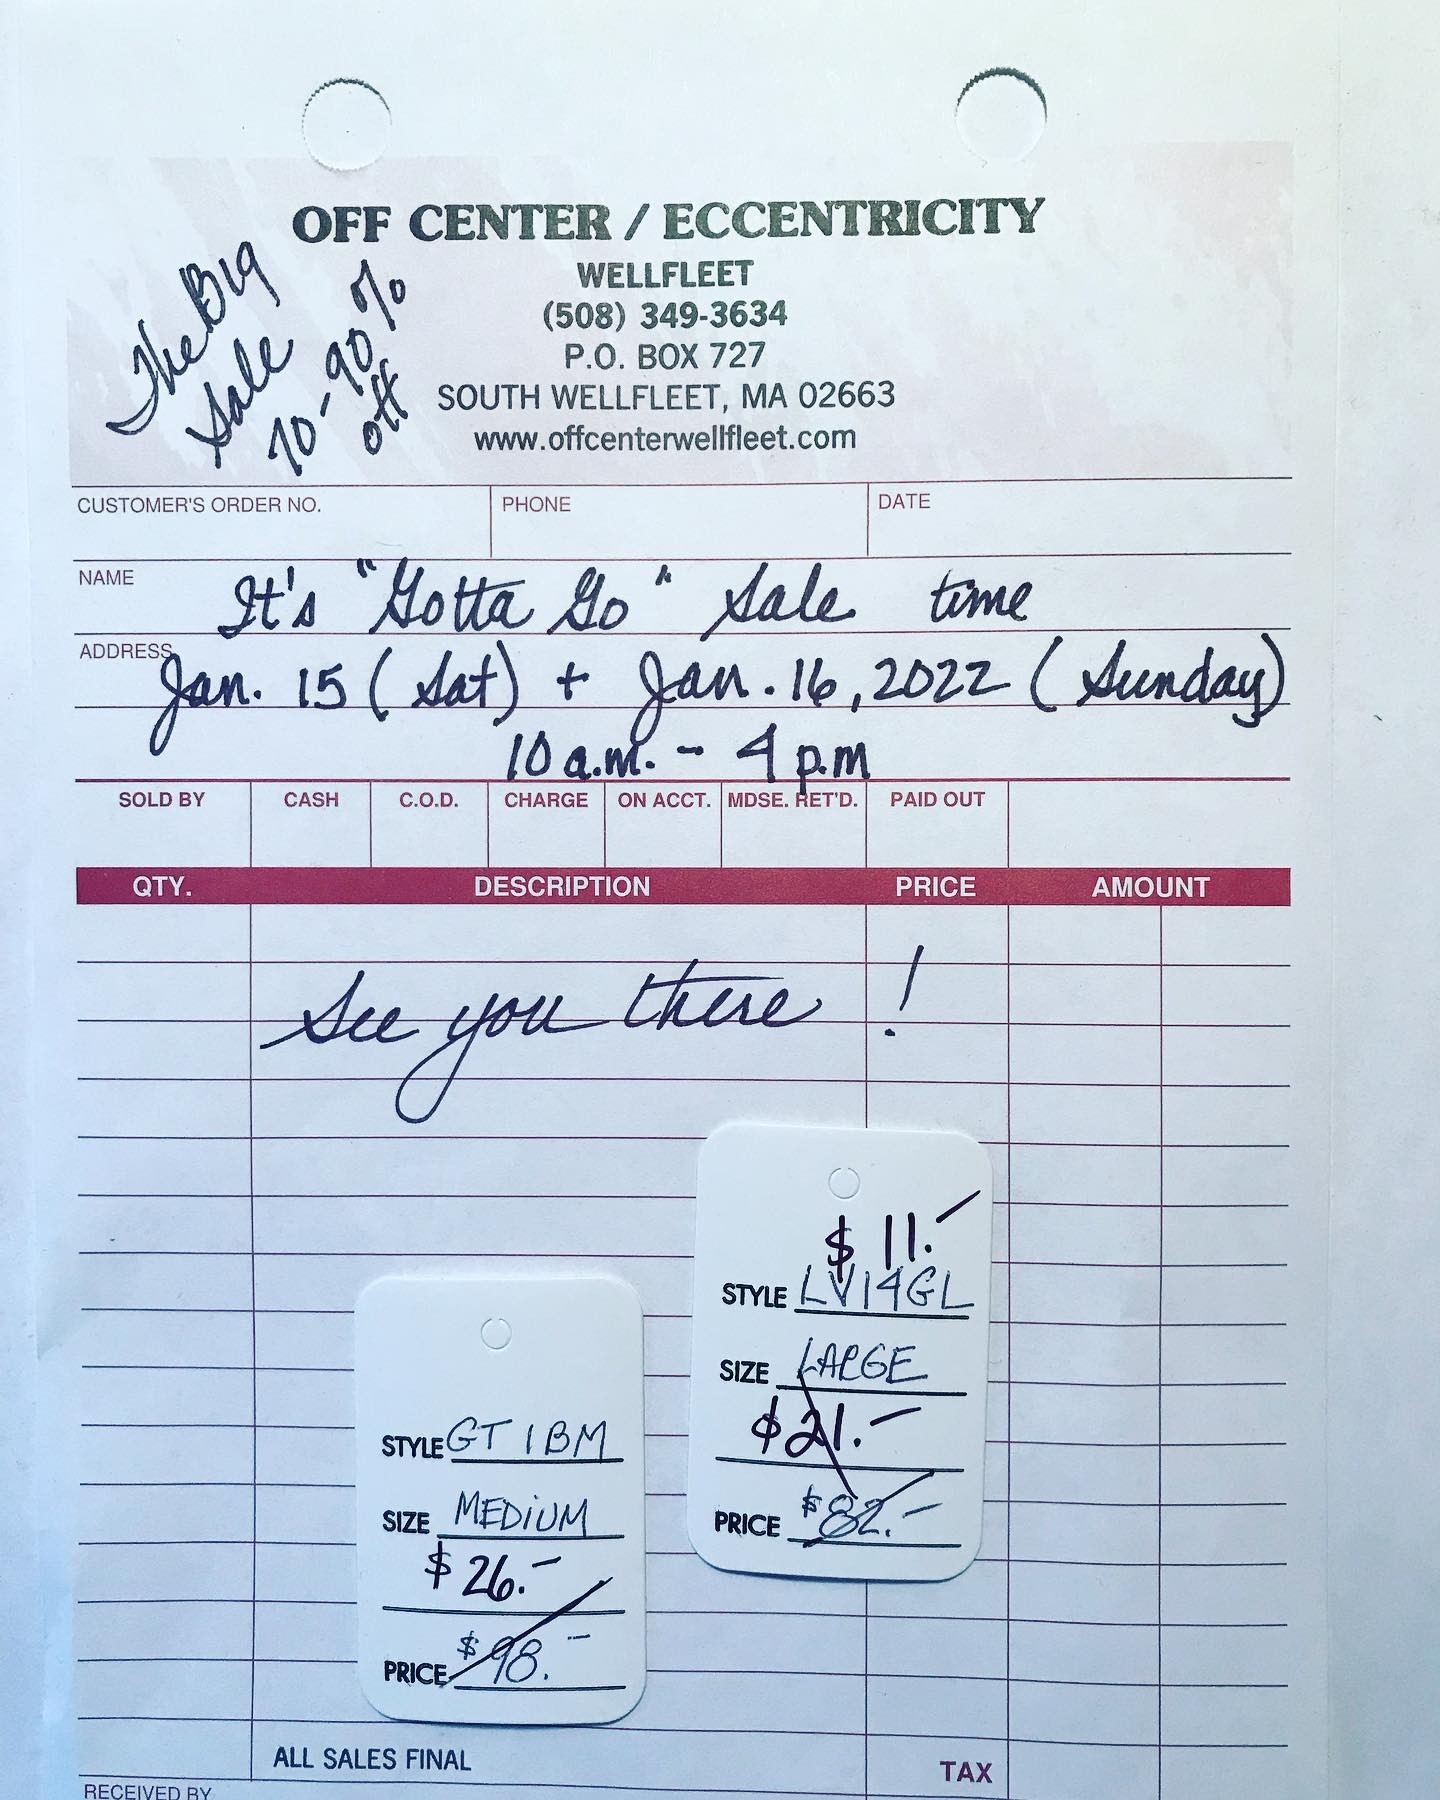 OFF CENTER / ECCENTRICITY
WELLFLEET
(508) 349-3634
P.O. BOX 727
SOUTH WELLFLEET, MA 02663
www.offcenterwellfleet.com
The Big
Sale
70-90%
off
CUSTOMER'S ORDER NO. PHONE DATE
NAME It's "Gotta Go" Sale time
ADDRESS Jan. 15 (Sat) + Jan. 16, 2022 (Sunday)
10 a.m. - 4 p.m
SOLD BY CASH C.O.D. CHARGE ON ACCT. MDSE. RET'D. PAID OUT
QTY. DESCRIPTION PRICE AMOUNT
See you there !
$11.-
STYLE LV14GL
SIZE LARGE
$21.-
PRICE $82.-
STYLE GT1BM
SIZE MEDiUM
$26.-
PRICE $98.-
ALL SALES FINAL TAX
RECEIVED BY